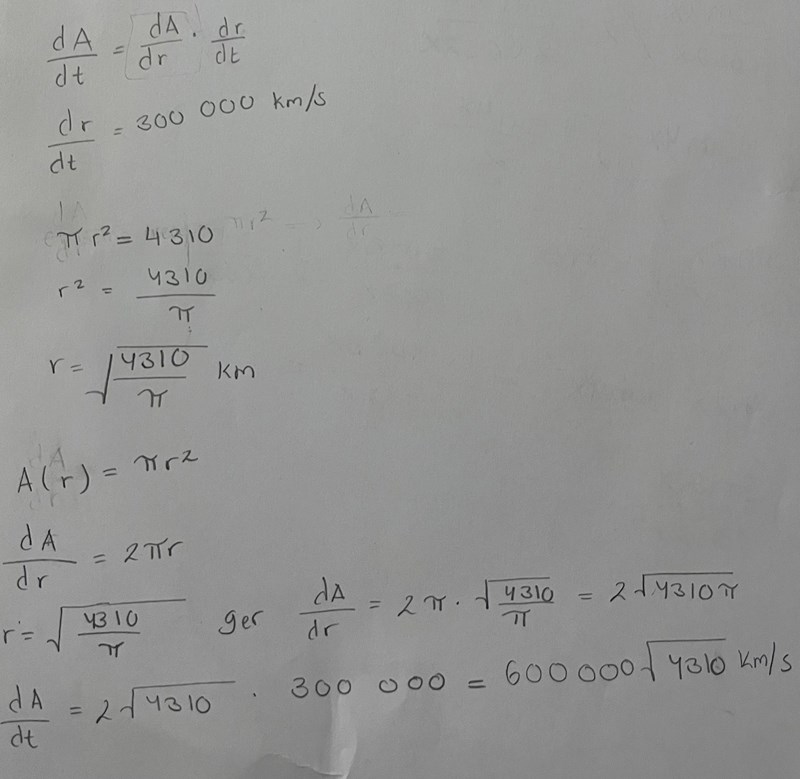 dA/dt = dA/dr · dr/dt
dr/dt = 300 000 km/s
πr² = 4310
r² = 4310/π
r = √(4310/π) km
A(r) = πr²
dA/dr = 2πr
r = √(4310/π) ger dA/dr = 2π · √(4310/π) = 2√(4310π)
dA/dt = 2√4310 · 300 000 = 600 000√4310 km/s